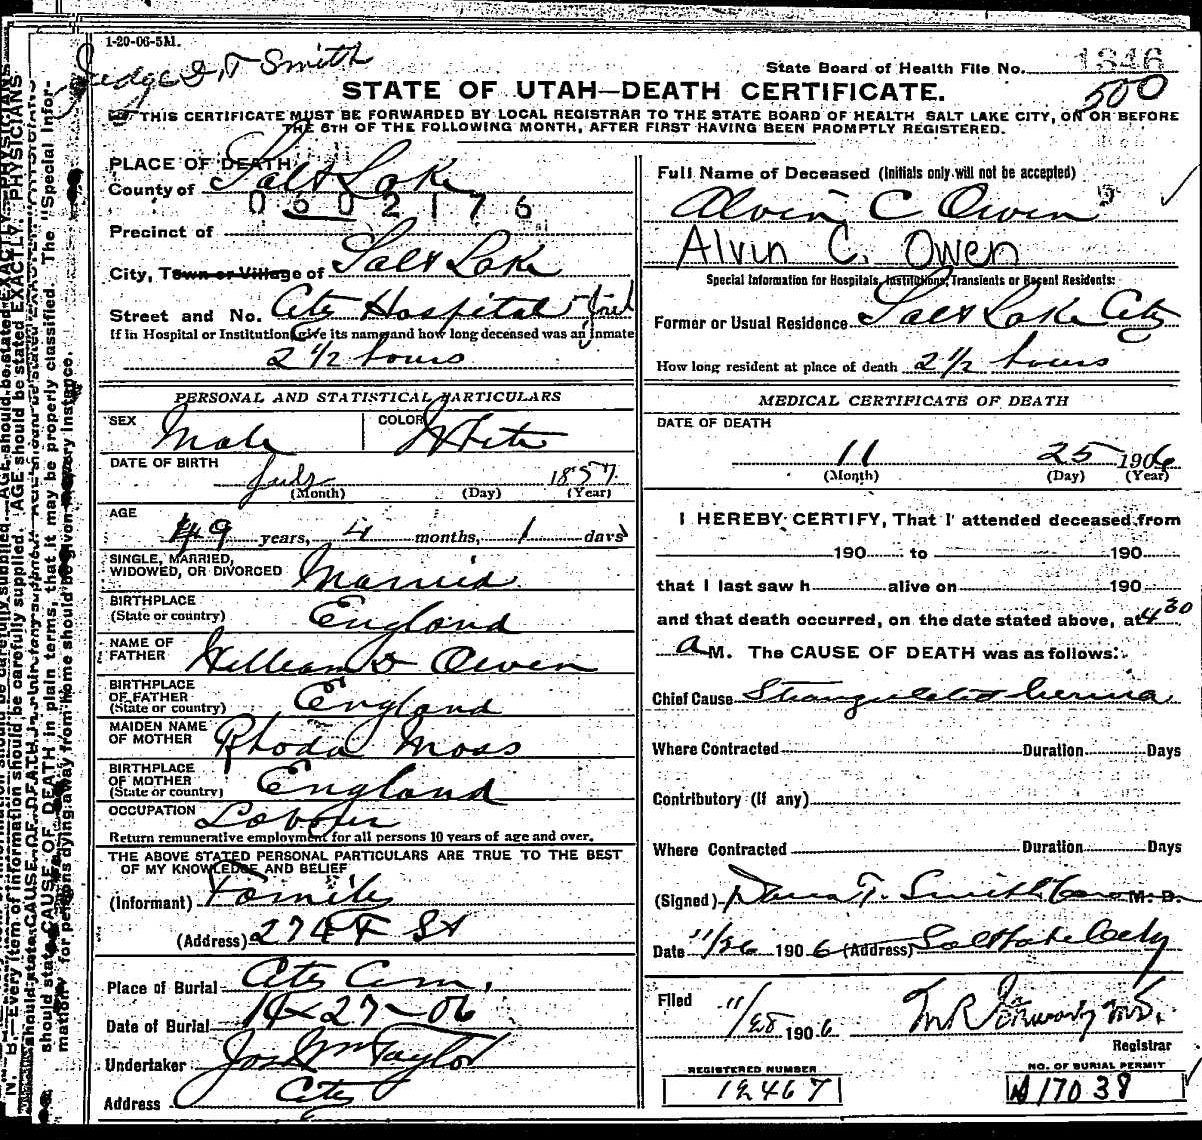 1-20-06-5M.
Judge D. T Smith
State Board of Health File No. 1346
STATE OF UTAH—DEATH CERTIFICATE.
500
THIS CERTIFICATE MUST BE FORWARDED BY LOCAL REGISTRAR TO THE STATE BOARD OF HEALTH SALT LAKE CITY, ON OR BEFORE
THE 5TH OF THE FOLLOWING MONTH, AFTER FIRST HAVING BEEN PROMPTLY REGISTERED.
PLACE OF DEATH
County of Salt Lake
0602176
Precinct of
City, Town or Village of Salt Lake
Street and No. City Hospital
If in Hospital or Institution give its name and how long deceased was an inmate
2 1/2 hours
PERSONAL AND STATISTICAL PARTICULARS
SEX Male COLOR White
DATE OF BIRTH July 1857
(Month) (Day) (Year)
AGE 49 years, 4 months, 1 days
SINGLE, MARRIED,
WIDOWED, OR DIVORCED Married
BIRTHPLACE
(State or country) England
NAME OF
FATHER William D Owen
BIRTHPLACE
OF FATHER
(State or country) England
MAIDEN NAME
OF MOTHER Rhoda Moss
BIRTHPLACE
OF MOTHER
(State or country) England
OCCUPATION Laborer
Return remunerative employment for all persons 10 years of age and over.
THE ABOVE STATED PERSONAL PARTICULARS ARE TRUE TO THE BEST
OF MY KNOWLEDGE AND BELIEF
(Informant) Family
(Address) 274 F St
Place of Burial City Cem.
Date of Burial 11-27-06
Undertaker Jos Wm Taylor
Address City
Full Name of Deceased (Initials only will not be accepted)
Alvin C Owen
Alvin C. Owen
Special Information for Hospitals, Institutions, Transients or Recent Residents:
Former or Usual Residence Salt Lake City
How long resident at place of death 2 1/2 hours
MEDICAL CERTIFICATE OF DEATH
DATE OF DEATH
11 25 1906
(Month) (Day) (Year)
I HEREBY CERTIFY, That I attended deceased from
190 to 190
that I last saw h alive on 190
and that death occurred, on the date stated above, at 4 30
a M. The CAUSE OF DEATH was as follows:
Chief Cause Strangulated hernia
Where Contracted Duration Days
Contributory (if any)
Where Contracted Duration Days
(Signed) Dana T. Smith M. D.
Date 11/26 1906 (Address) Salt Lake City
Filed 11/28 1906
Registrar
REGISTERED NUMBER
12467
NO. OF BURIAL PERMIT
A17038